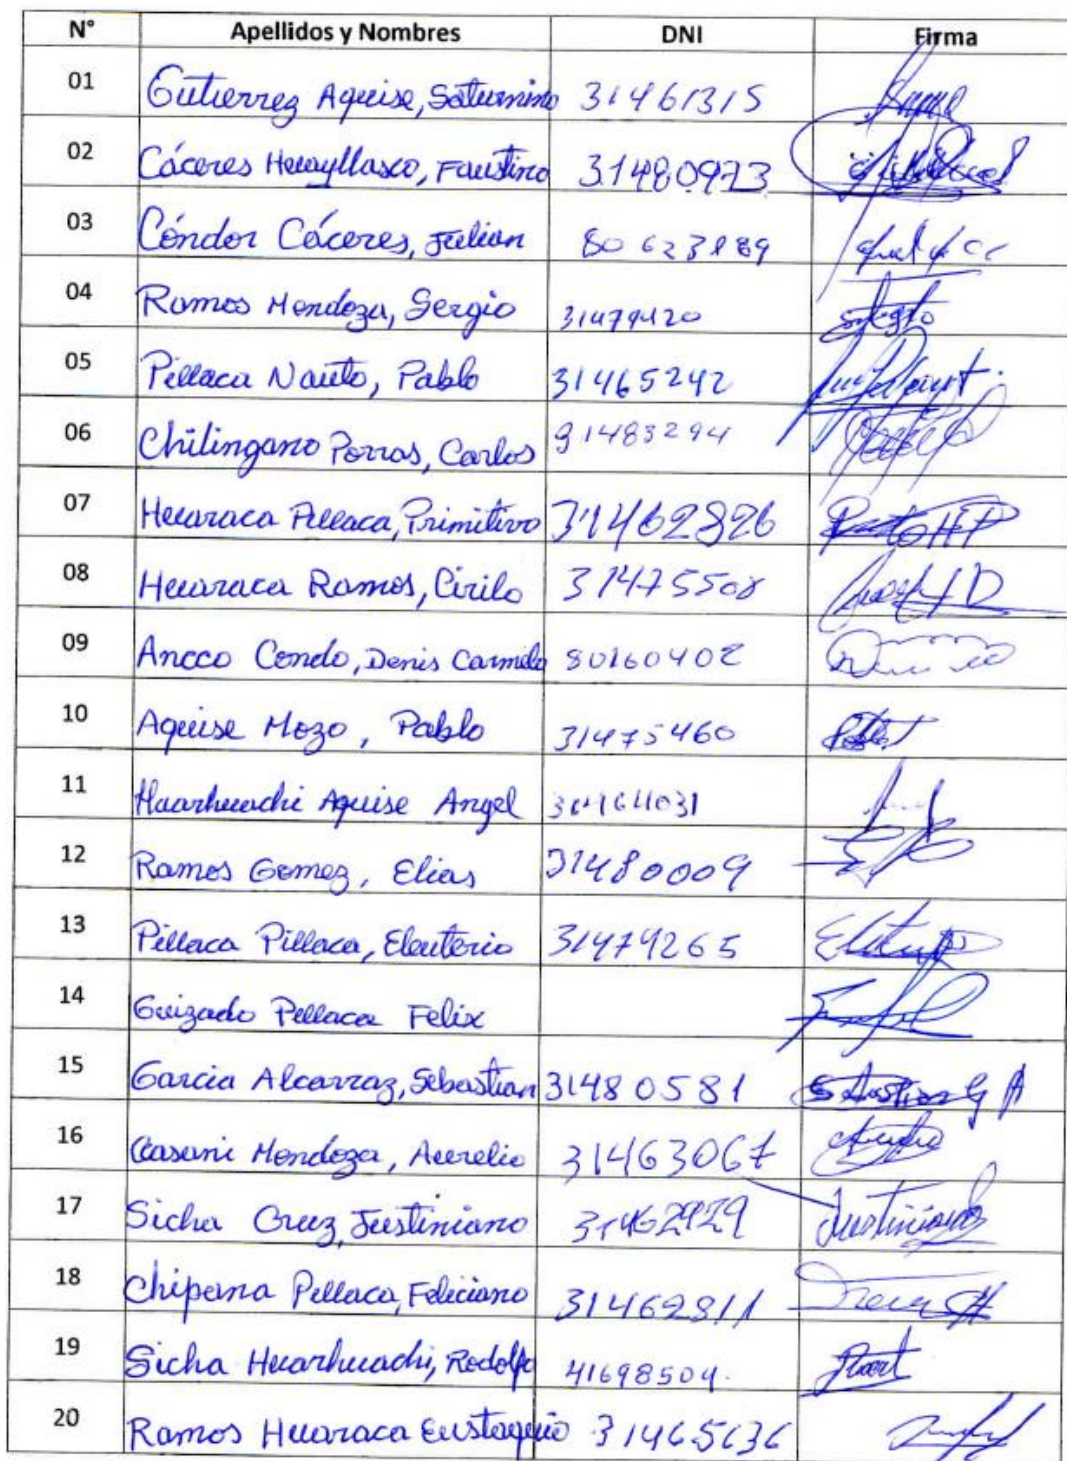 N° Apellidos y Nombres DNI Firma
01 Gutierrez Aquise, Saturnino 31461315
02 Cáceres Huayllasco, Faustino 31480973
03 Cóndor Cáceres, Julian 80623889
04 Ramos Mendoza, Sergio 31479420
05 Pillaca Nauto, Pablo 31465242
06 Chilingano Porras, Carlos 31483294
07 Huaraca Pillaca, Primitivo 31462826
08 Huaraca Ramos, Cirilo 31475508
09 Ancco Condo, Denis Carmelo 80160402
10 Aquise Mozo, Pablo 31475460
11 Huarhuachi Aquise Angel
12 Ramos Gomez, Elias 31480009
13 Pillaca Pillaca, Eleuterio 31479265
14 Guizado Pillaca Felix
15 Garcia Alcarraz, Sebastian 31480581
16 Ccasani Mendoza, Aurelio 31463067
17 Sicha Cruz, Justiniano 31462929 Justiniano
18 Chipana Pillaca, Feliciano 31462811
19 Sicha Huarhuachi, Rodolfo 41698504.
20 Ramos Huaraca Eustaquio 31465636